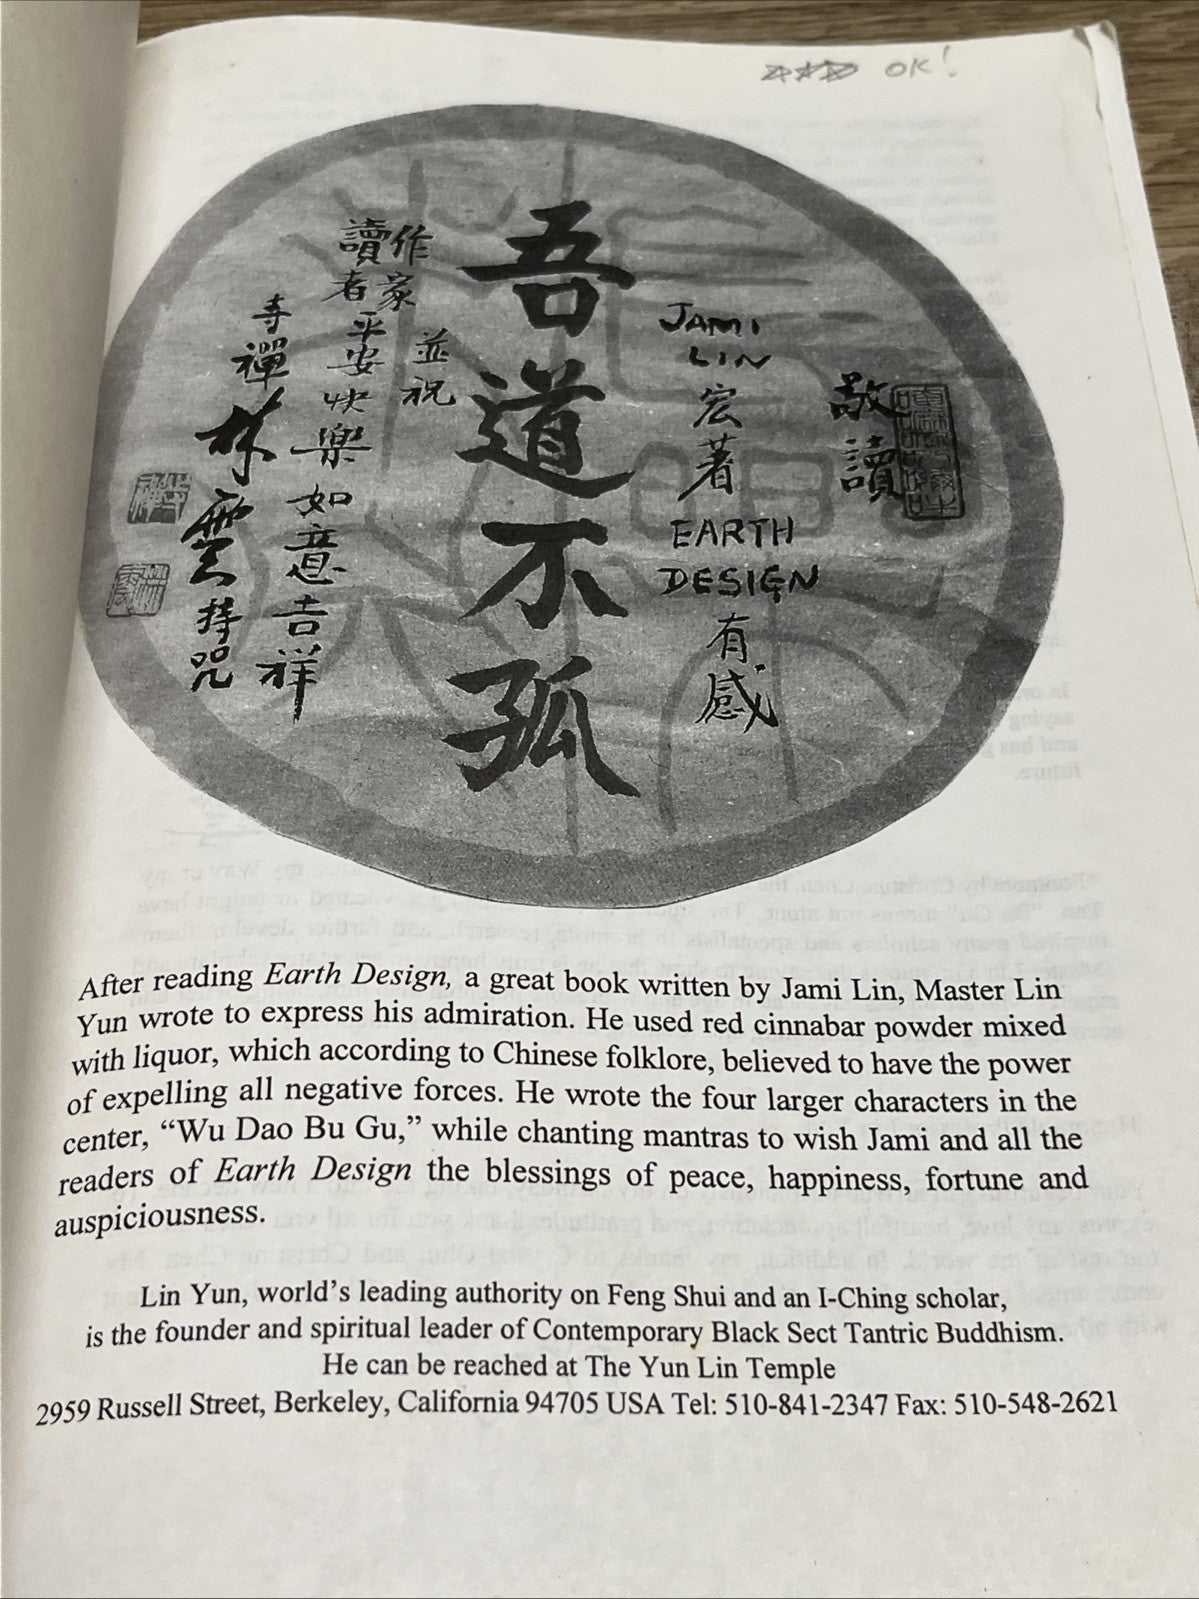 OK!
敬讀
JAMI
LIN
宏著
EARTH
DESIGN
有感
吾道不孤
並祝
作家
讀者平安快樂
如意吉祥
寺禪林雲持咒
After reading Earth Design, a great book written by Jami Lin, Master Lin
Yun wrote to express his admiration. He used red cinnabar powder mixed
with liquor, which according to Chinese folklore, believed to have the power
of expelling all negative forces. He wrote the four larger characters in the
center, “Wu Dao Bu Gu,” while chanting mantras to wish Jami and all the
readers of Earth Design the blessings of peace, happiness, fortune and
auspiciousness.
Lin Yun, world’s leading authority on Feng Shui and an I-Ching scholar,
is the founder and spiritual leader of Contemporary Black Sect Tantric Buddhism.
He can be reached at The Yun Lin Temple
2959 Russell Street, Berkeley, California 94705 USA Tel: 510-841-2347 Fax: 510-548-2621